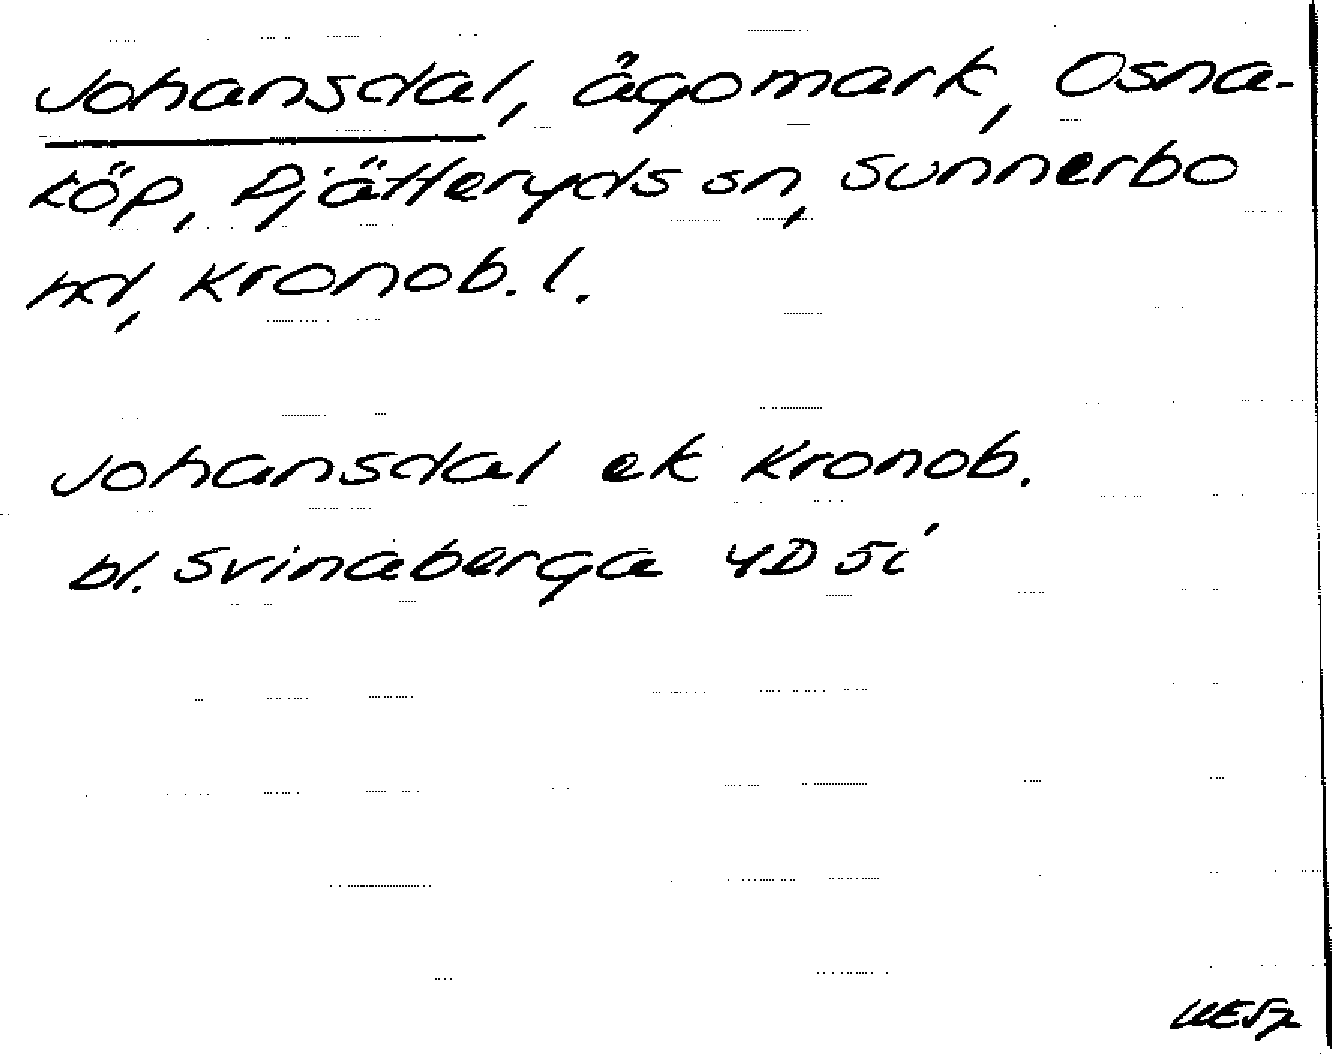 Johansdal, ägomark, Osna-
köp, Pjätteryds sn, Sunnerbo
hd, Kronob. l.
Johansdal ek Kronob.
bl. Svinaberga 4D 5i